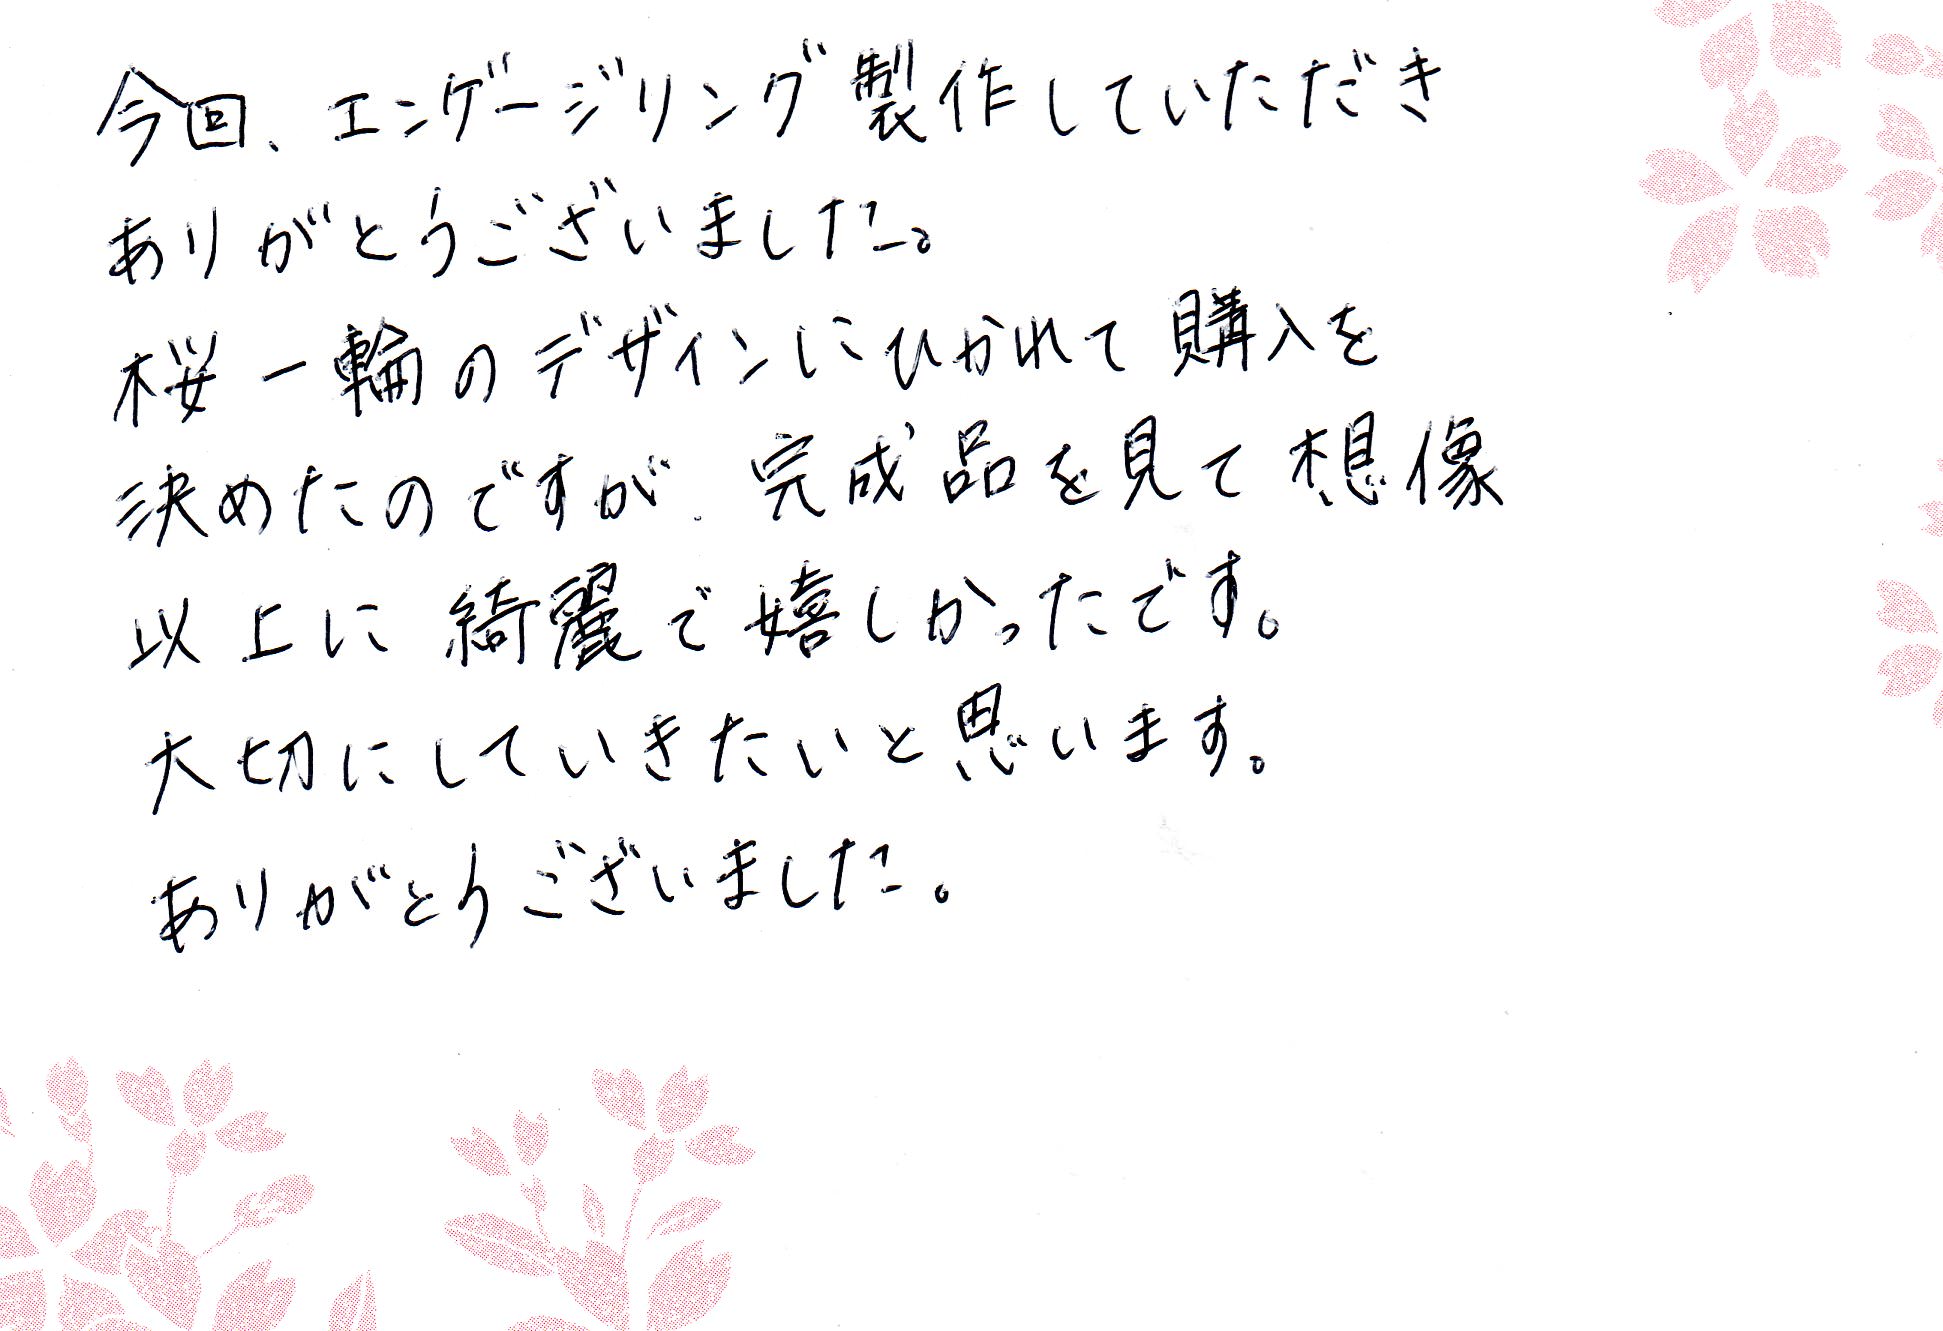 今回、エンゲージリング製作していただき
ありがとうございました。
桜一輪のデザインにひかれて購入を
決めたのですが、完成品を見て想像
以上に綺麗で嬉しかったです。
大切にしていきたいと思います。
ありがとうございました。